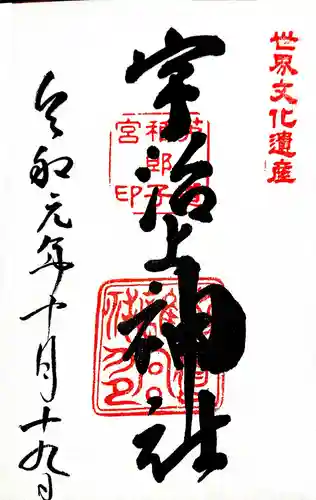 世界文化遺産
宇治上神社
令和元年十月十九日